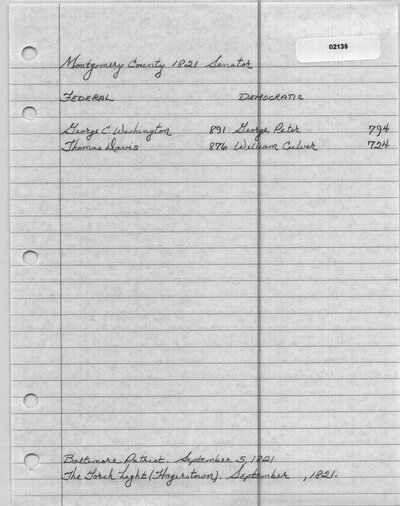 02135
Montgomery County 1821 Senator
FEDERAL DEMOCRATIC
George C. Washington 891 George Peter 794
Thomas Davis 876 William Culver 724
Baltimore Patriot. September 5, 1821
The Torch Light (Hagerstown). September , 1821.